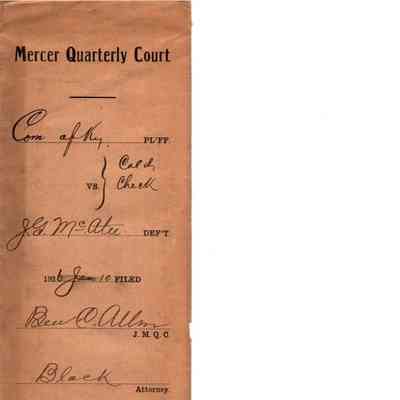 Mercer Quarterly Court
Com of Ky. PL'FF.
Cold
VS. Check
J.G. McAtee DEF'T.
1926 Jan 10 FILED
Ben C. Allin
J. M. Q. C.
Black
Attorney.